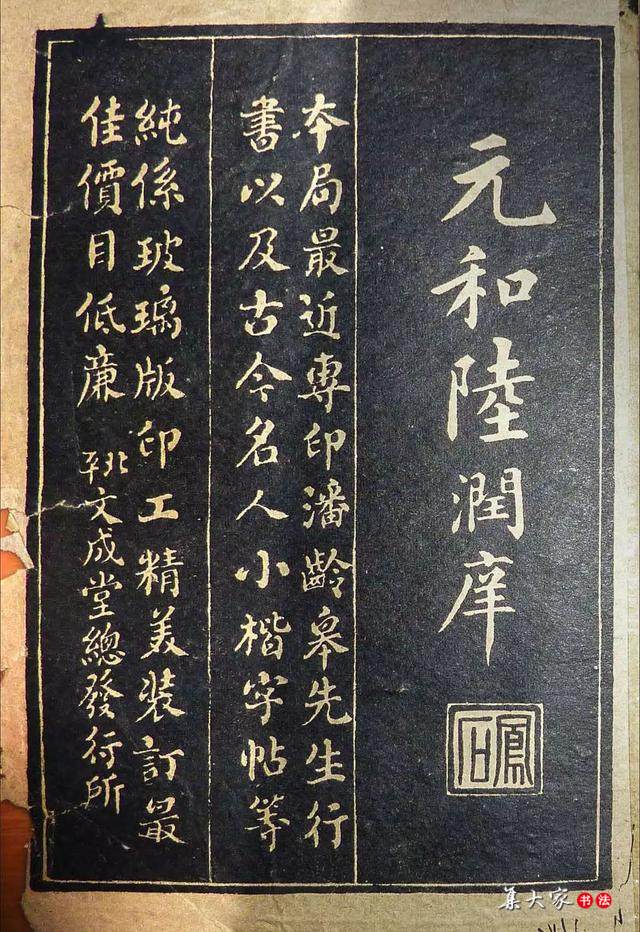 元和陸潤庠
鳳石
本局最近專印潘齡皋先生行
書以及古今名人小楷字帖等
純係玻璃版印工精美裝訂最
佳價目低廉 北平文成堂總發行所
集大家书法